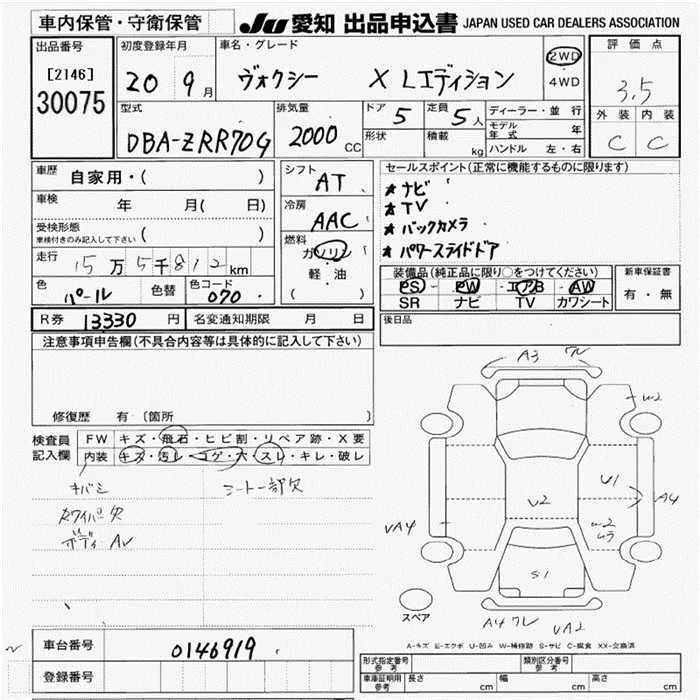 車内保管・守衛保管
JU 愛知 出品申込書 JAPAN USED CAR DEALERS ASSOCIATION
出品番号
[2146]
30075
初度登録年月
20 9月
車名・グレード
ヴォクシー X Lエディション
2WD
4WD
評価点
3.5
外装 内装
C C
型式
DBA-ZRR70G
排気量
2000 CC
ドア 5
定員 5人
形状
積載 kg
ディーラー・並行
モデル年式 年
ハンドル 左・右
車歴 自家用・( )
車検 年 月( 日)
受検形態
車検付きのみ記入して下さい ( )
走行 15万5千812km
色 パール 色替
色コード 070
シフト AT
冷房 AAC
燃料
ガソリン
軽・油
( )
セールスポイント(正常に機能するものに限ります)
★ナビ
★TV
★バックカメラ
★パワースライドドア
装備品(純正品に限り○をつけてください)
PS・PW・エアB・AW
SR ナビ TV カワシート
新車保証書
有・無
R券 13330円 名変通知期限 月 日
後日品
注意事項申告欄(不具合内容等は具体的に記入して下さい)
修復歴 有(箇所 )
検査員
記入欄
FW キズ・飛石・ヒビ割・リペア跡・X要
内装 キズ・汚レ・コゲ・穴・スレ・キレ・破レ
キバミ
シート一部欠
ボディ AV
A3 ワレ
W2
U1
A4
U2
W2
ムラ
VA4
S1
A4 ワレ VA2
スペア
A-キズ E-エクボ U-凹み W-補修跡 S-サビ C-腐食 XX-交換済
車台番号 0146919
登録番号
形式指定番号
参考
類別区分番号
参考
車庫証明用
参考
長さ cm 幅 cm 高さ cm